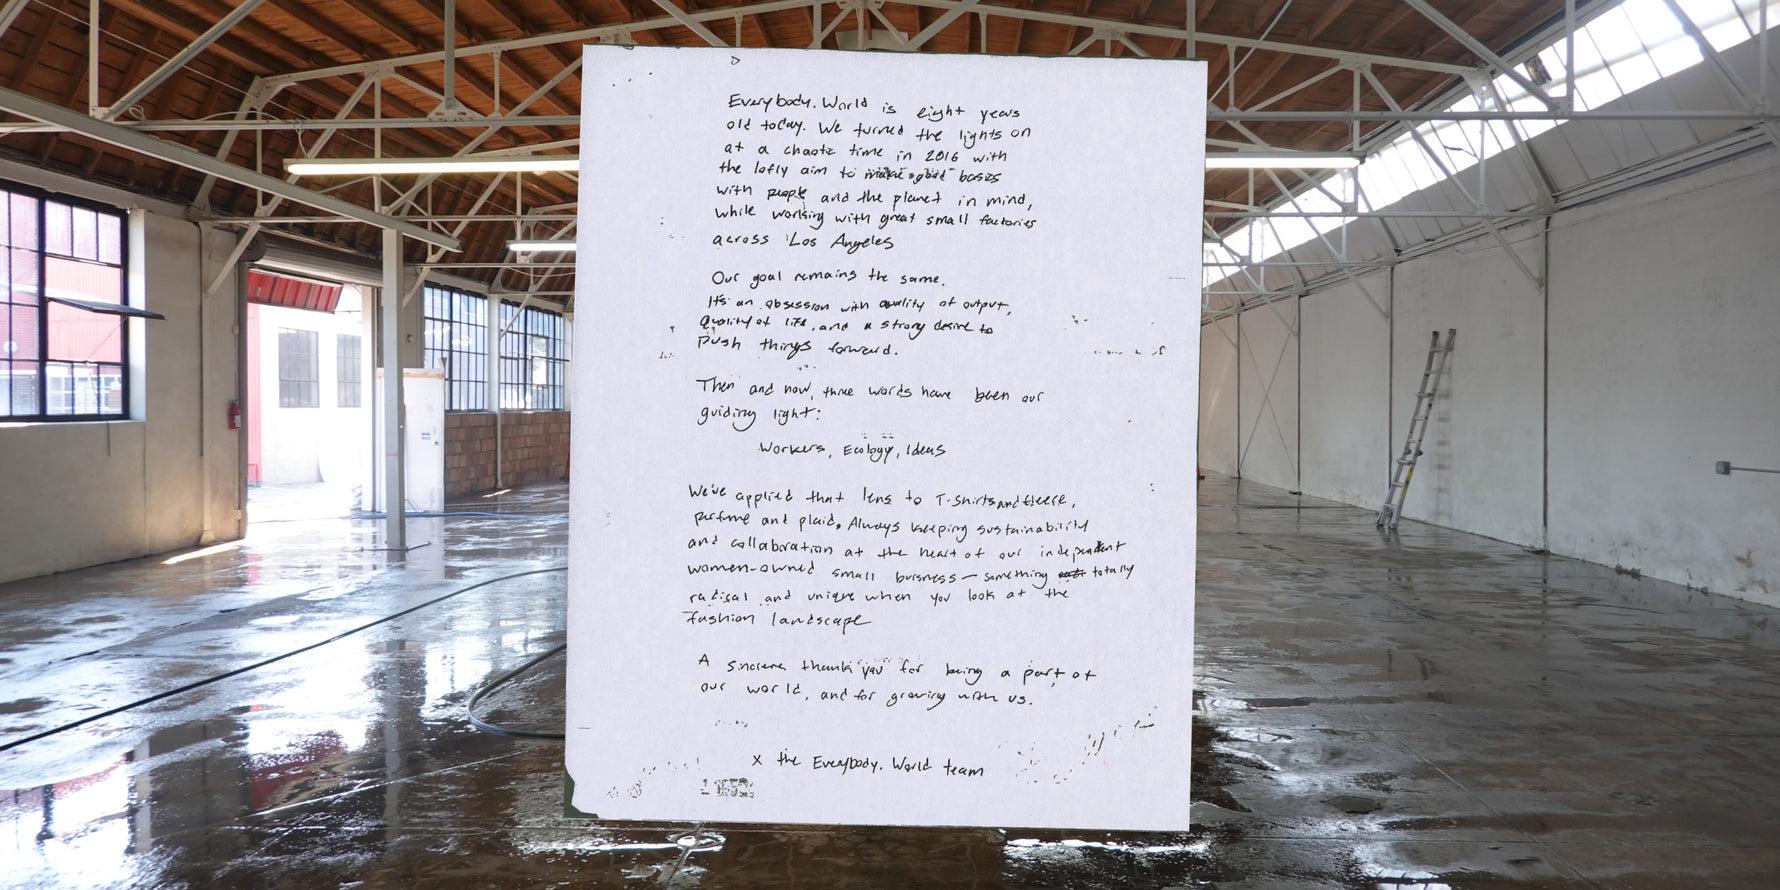 Everybody.World is eight years
old today. We turned the lights on
at a chaotic time in 2016 with
the lofty aim to make good basics
with people and the planet in mind,
while working with great small factories
across Los Angeles
Our goal remains the same.
It's an obsession with quality of output,
quality of life, and a strong desire to
push things forward.
Then and now, three words have been our
guiding light:
Workers, Ecology, Ideas
We've applied that lens to T-shirts and fleece,
perfume and plaid. Always keeping sustainability
and collaboration at the heart of our independent
women-owned small business — something totally
radical and unique when you look at the
fashion landscape
A sincere thank you for being a part of
our world, and for growing with us.
x the Everybody.World team